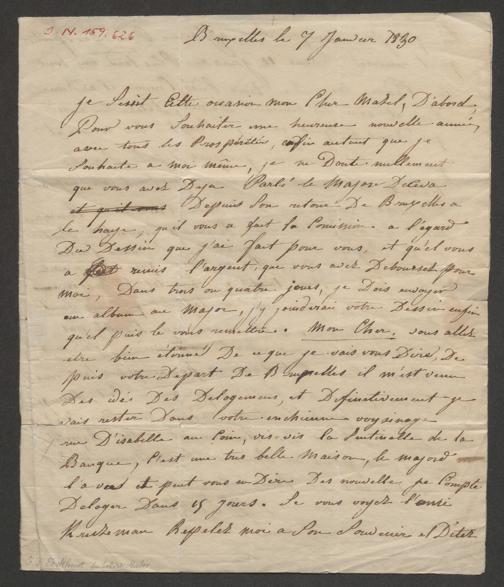 I. N. 159.626
Bruxelles le 7 Janvier 1830
je saisit Cette ocasion mon Cher Mahel, D'abord
Pour vous Souhaiter une heureuse nouvelle année,
avec tous les Prospérités, enfin autant que je
Souhaite a moi même, je ne Doute nullement
que vous avez Deja Parlé le Major
et qu'il vous Depuis Son retour De Bruxelles a
la haye, qu'il vous a fait la Comission a l'égard
Du Dessin que j'ai fait pour vous, et qu'el vous
a remis l'argent, que vous avez Deboursér pour
moi, Dans trois ou quatre jours, je Dois envoyer
une album au Major, j'y joinderai votre Dessin enfin
qu'el puis le vous remettre. Mon Cher, vous allez
etre bien étonné De ce que je vais vous Dire, De
puis votre Depart De Bruxelles il m'est venu
Des idés Des Delogemens, et Definitivement je
vais rester Dans votre enchienne voysinage
rue D'isabelle au Coin, vis-vis la Sentinelle de la
Banque, C'est une tres belle Maison, le majord
l'a vue et peut vous en Dire Des nouvelle, je Compte
Deloger Dans 15 jours. Se vous voyez l'ami
Kruseman Reppelez moi a Son Souvenir et Dites